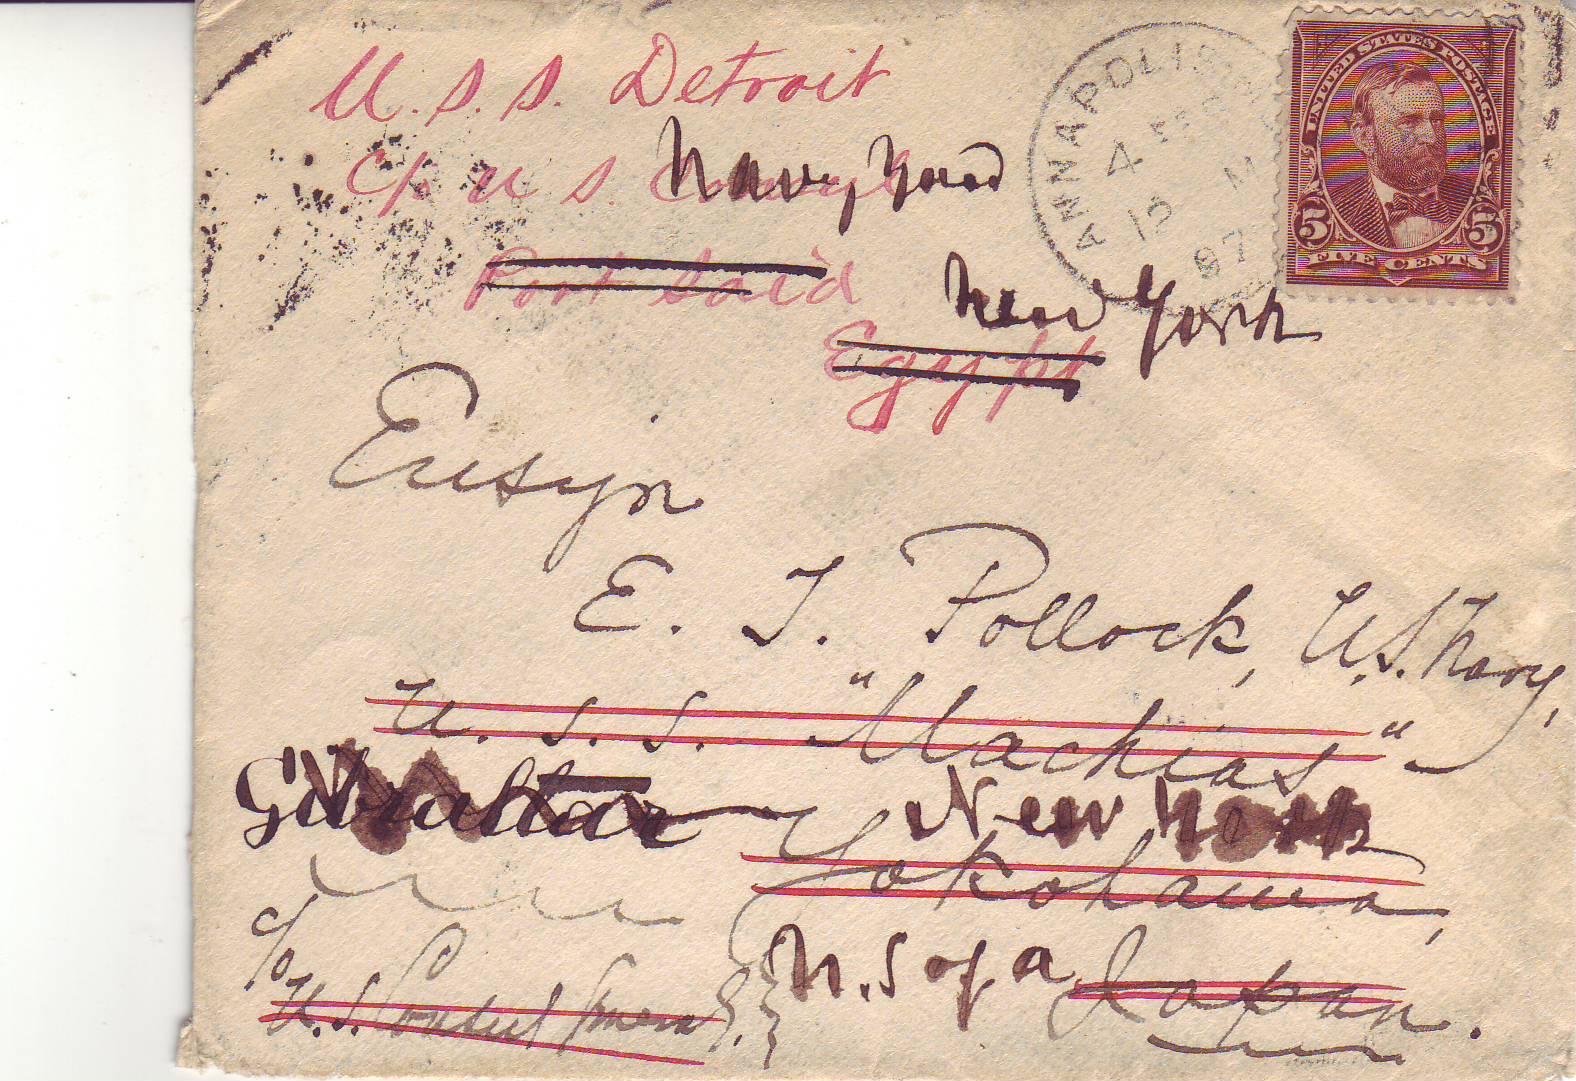 U.S.S. Detroit
c/o U S. Navy Yard
Port Said
New York
Egypt
ANNAPOLIS
4
12 M
97
UNITED STATES POSTAGE
5 5
FIVE CENTS
Ensign
E. J. Pollock, U.S. Navy,
U.S.S. "Machias"
Gibraltar New York
Yokohama,
U.S of a Japan.
c/o
U.S. Consul General,